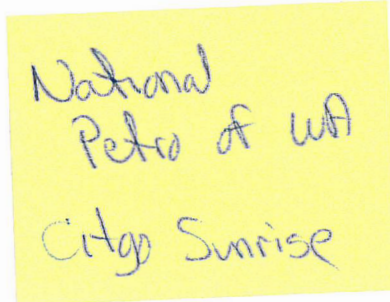 National
Petro of WA
Citgo Sunrise